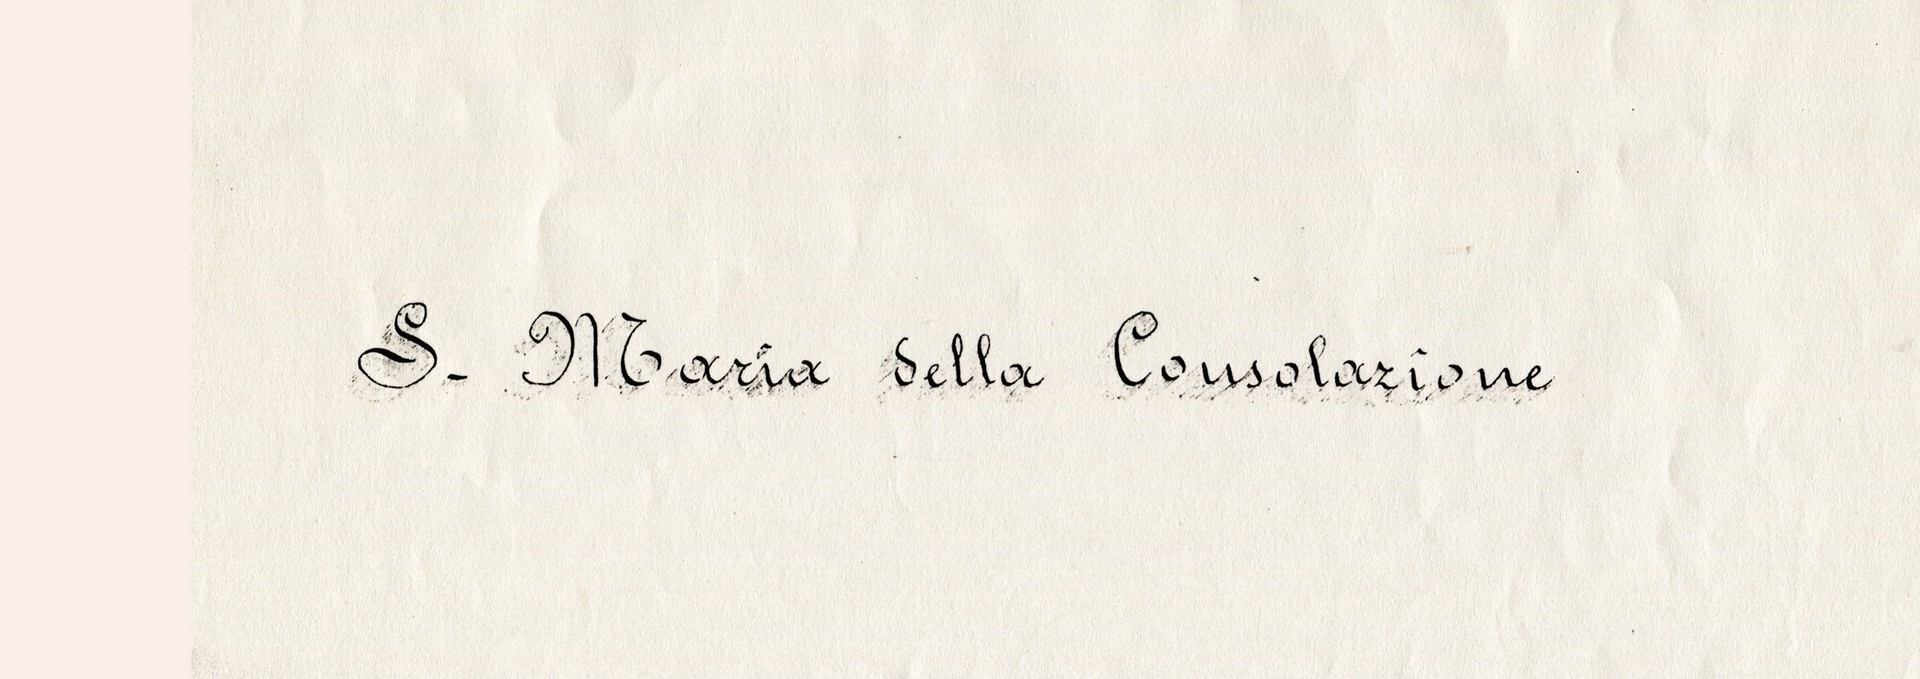 S. Maria della Consolazione